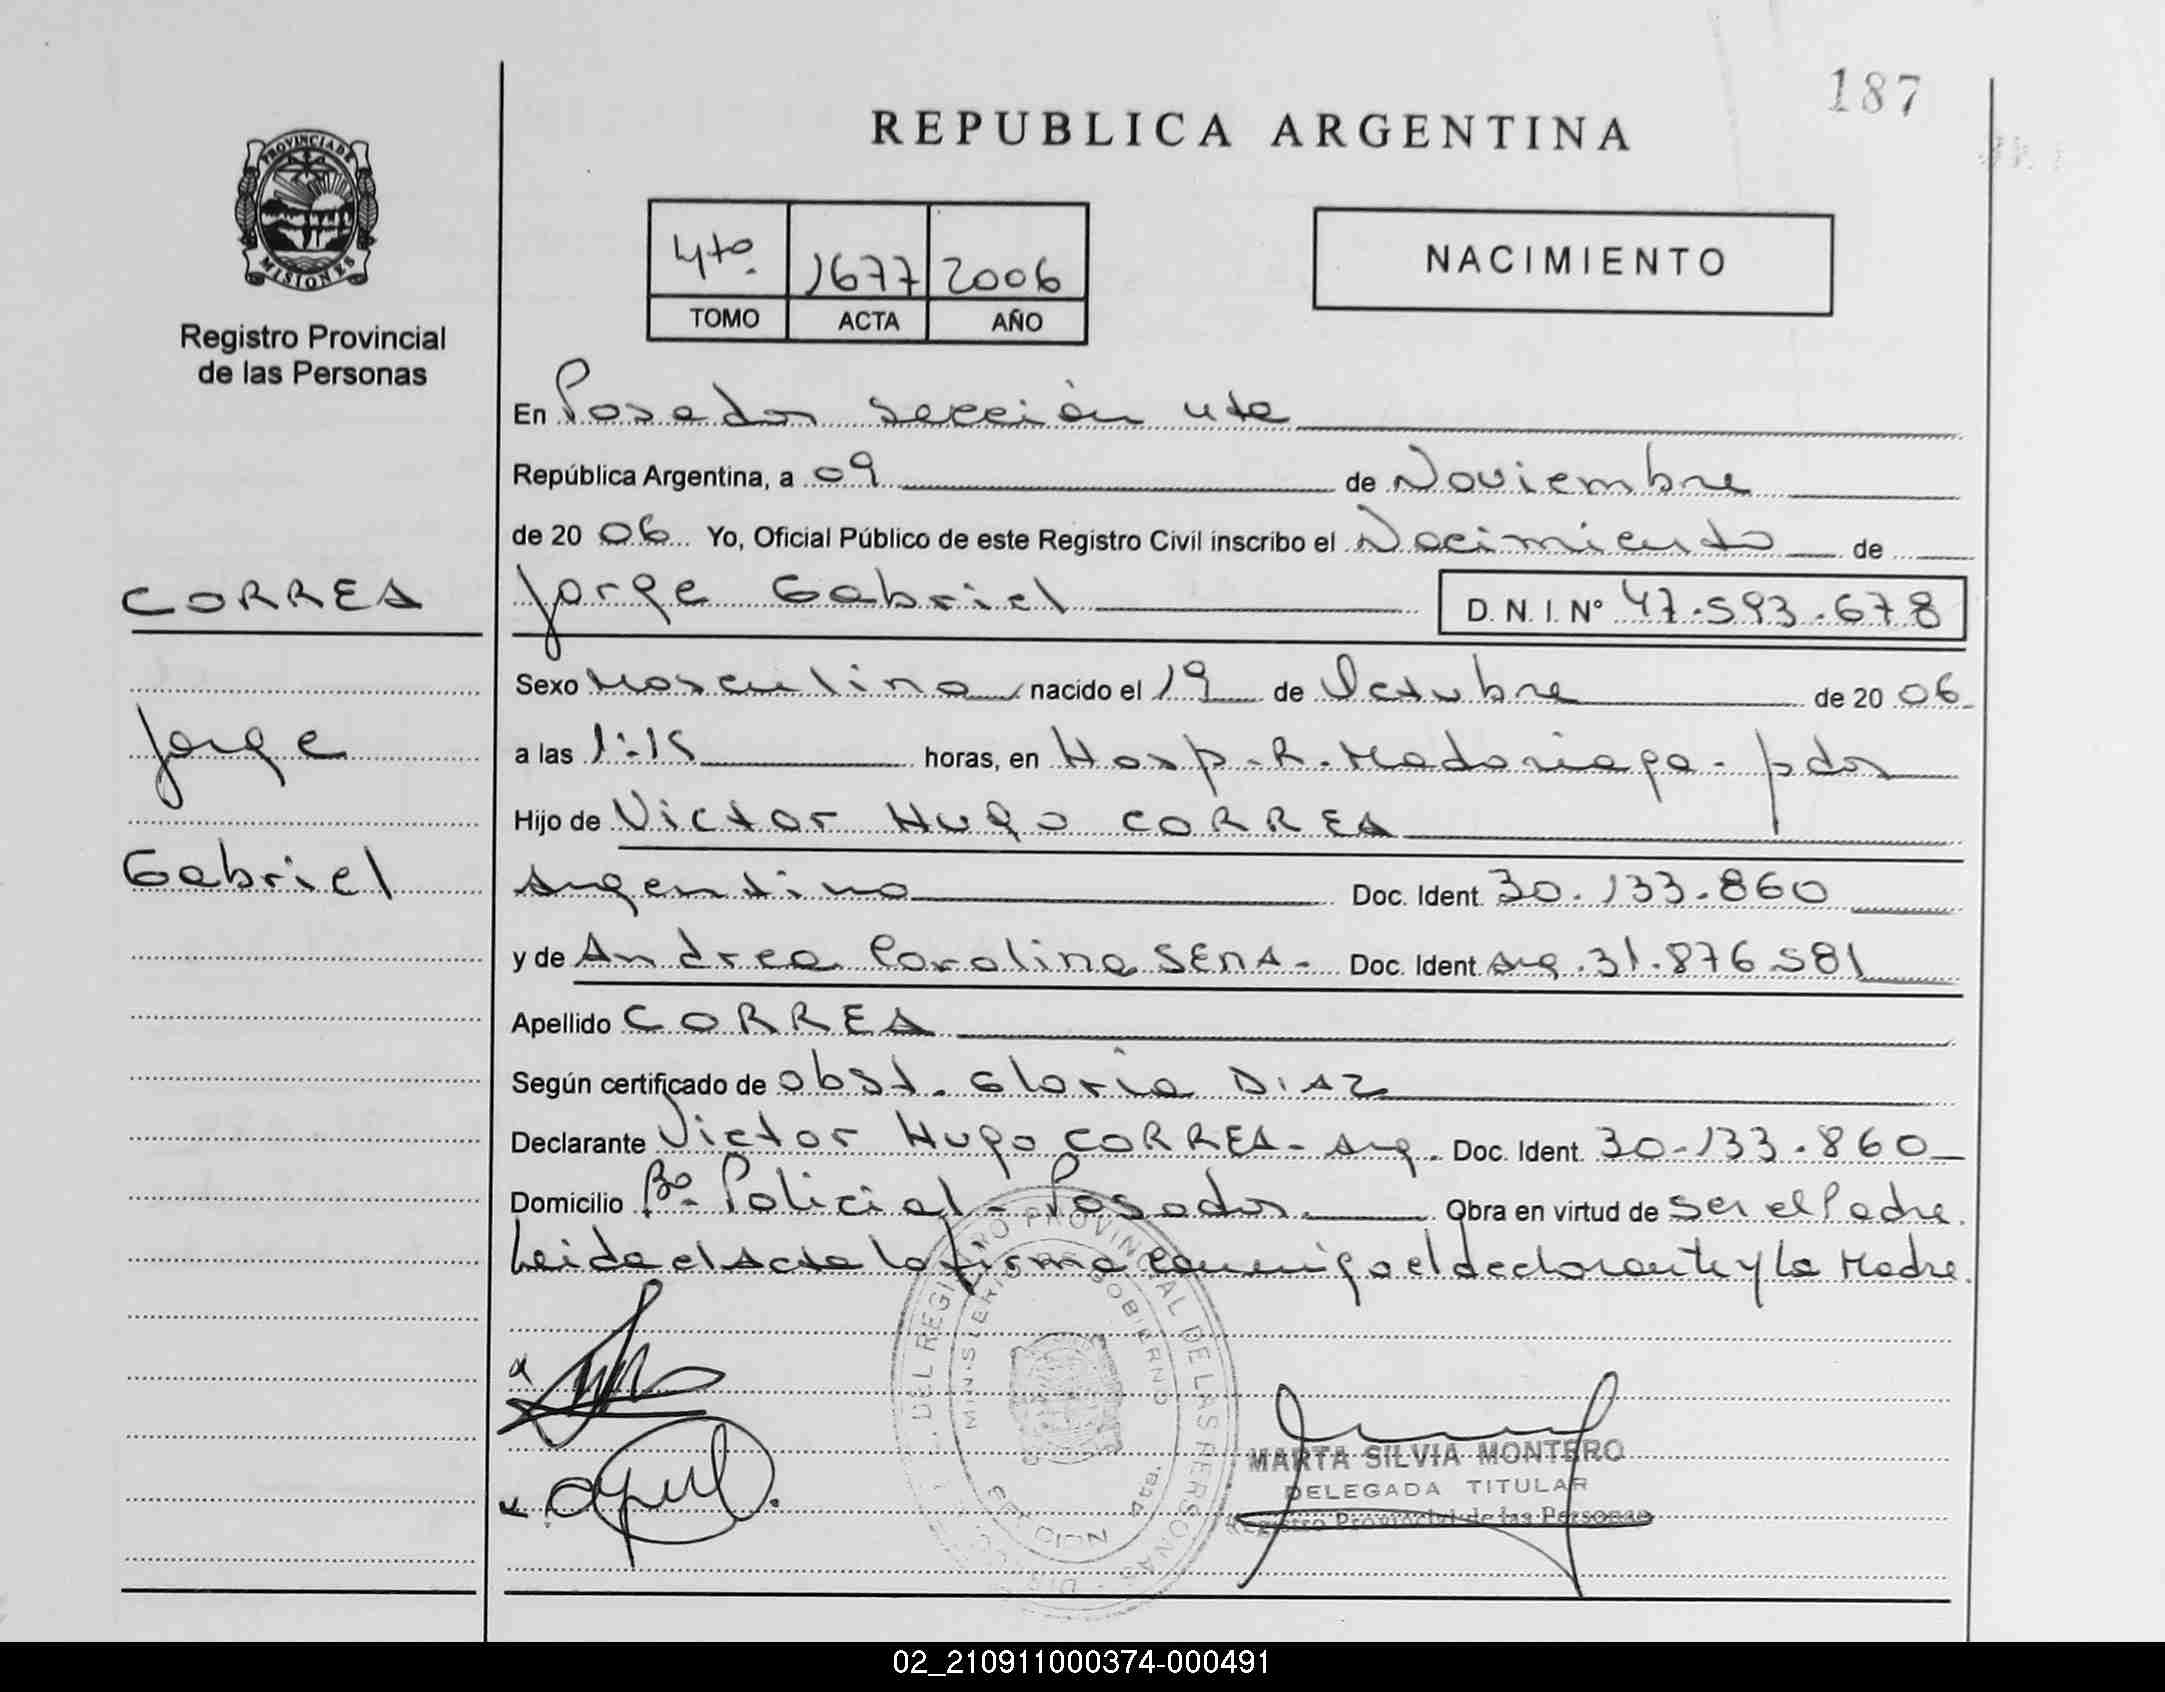 187
REPUBLICA ARGENTINA
PROVINCIA DE
MISIONES
Registro Provincial
de las Personas
4to. 1677 2006
TOMO ACTA AÑO
NACIMIENTO
En Posadas sección 4ta
República Argentina, a 09 de Noviembre
de 20 06 Yo, Oficial Público de este Registro Civil inscribo el Nacimiento de
CORREA
Jorge Gabriel
D. N. I. N° 47.593.678
Sexo Masculino nacido el 19 de Octubre de 20 06
Jorge
a las 1:15 horas, en Hosp. R. Madariaga - pdas
Hijo de Victor Hugo CORREA
Gabriel
Argentino Doc. Ident. 30.133.860
y de Andrea Carolina SENA - Doc. Ident. Arg. 31.876.581
Apellido CORREA
Según certificado de Obst. Gloria DIAZ
Declarante Victor Hugo CORREA - Arg. Doc. Ident. 30.133.860
Domicilio Bo. Policial - Posadas. Obra en virtud de ser el Padre.
Leida el Acta la firma conmigo el declarante y la Madre.
DEL REGISTRO PROVINCIAL DE LAS PERSONAS
MINISTERIO DE GOBIERNO
SECCION 4ta.
MARTA SILVIA MONTERO
DELEGADA TITULAR
Registro Provincial de las Personas
02_210911000374-000491